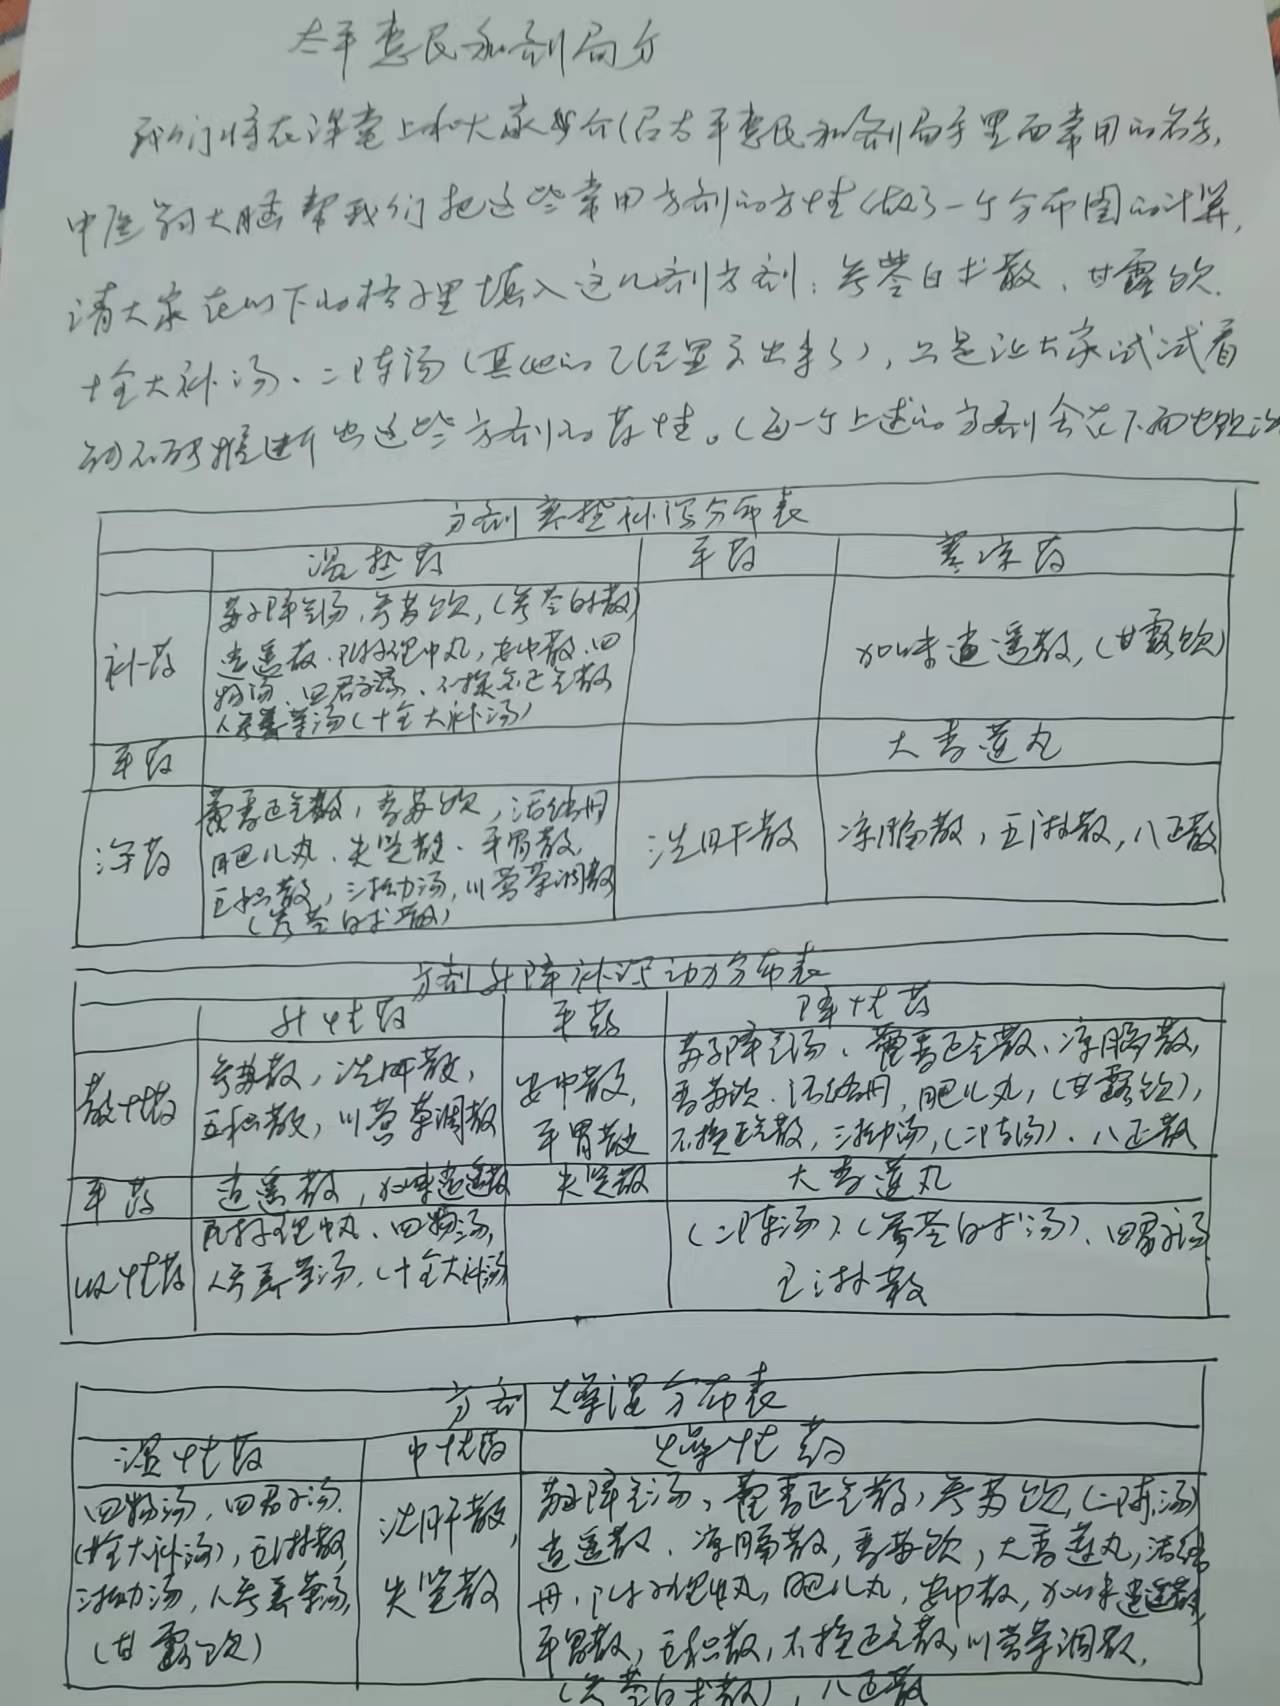 太平惠民和剂局方
我们将在课堂上和大家介绍太平惠民和剂局方里面常用的名方,
中医的大脑帮我们把这些常用方剂的方性做了一个分布图的计算,
请大家在以下的格子里填入这几剂方剂:参苓白术散、甘露饮、
十全大补汤、二陈汤(其他的已经显示出来了),只是让大家试试看
能不能推断出这些方剂的药性。(每一个上述的方剂会在下面出现
方剂寒热补泻分布表
温热药 平药 寒凉药
补药
苏子降气汤、参苏饮,(参苓白术散)
逍遥散、附子理中丸,安中散、四
物汤、四君子汤、不换金正气散
人参养荣汤(十全大补汤)
加味逍遥散,(甘露饮)
平药 大香连丸
泻药
藿香正气散,香苏饮,活络丹
肥儿丸、失笑散、平胃散
五积散,三拗汤,川芎茶调散
(参苓白术散)
洗肝散
凉膈散,五淋散,八正散
方剂升降补泻动力分布表
升性药 平药 降性药
散性药
参苏散,洗肝散,
五积散,川芎茶调散
安中散,
平胃散
苏子降气汤、藿香正气散、凉膈散,
香苏饮、活络丹,肥儿丸,(甘露饮),
不换正气散,三拗汤,(二陈汤)、八正散
平药 逍遥散,加味逍遥散 失笑散 大香连丸
收性药
附子理中丸、四物汤,
人参养荣汤,(十全大补汤)
(二陈汤)、(参苓白术汤)、四君子汤
五淋散
方剂燥湿分布表
湿性药 中性药 燥性药
四物汤,四君子汤、
(十全大补汤),五淋散,
三拗汤,人参养荣汤,
(甘露饮)
洗肝散,
失笑散
苏子降气汤,藿香正气散,参苏饮,(二陈汤)
逍遥散、凉膈散,香苏饮,大香连丸,活络
丹,附子理中丸,肥儿丸,安中散,加味逍遥散,
平胃散,五积散,不换正气散,川芎茶调散,
(参苓白术散),八正散